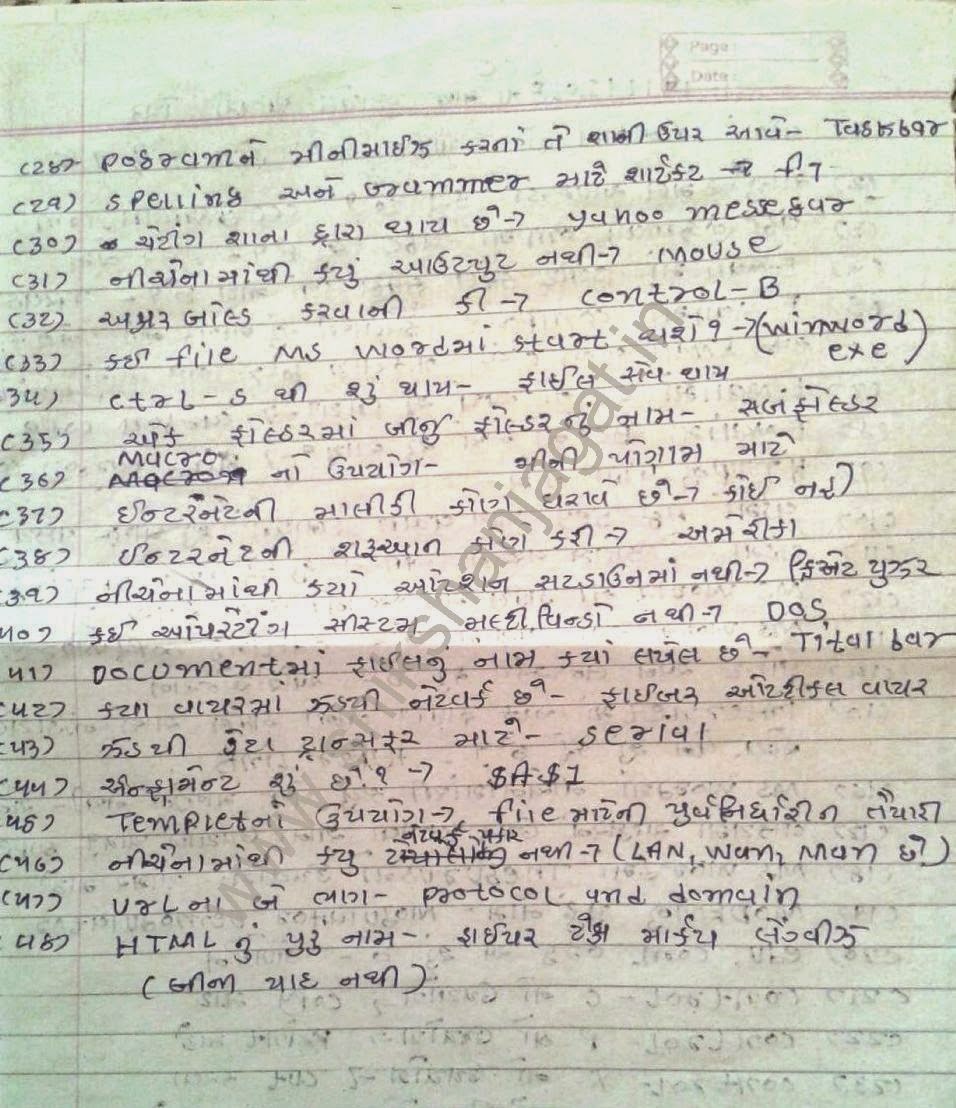 Page :
Date :
(28) Programને મીનીમાઈઝ કરતાં તે શાની ઉપર આવે- Taskbar
(29) spelling અને Grammer માટે શાર્ટકટ → f7
(30) ચેટીંગ શાના દ્વારા થાય છે→ yahoo messegar
(31) નીચેનામાંથી કયું આઉટપુટ નથી→ mouse
(32) અક્ષર બોલ્ડ કરવાની કી → control-B
(33) કઈ file MS Wordમાં સ્ટાર્ટ થશે? → (winword exe)
34) ctrl-s થી શું થાય- ફાઈલ સેવ થાય
(35) એક ફોલ્ડરમાં બીજુ ફોલ્ડરનું નામ- સબફોલ્ડર
(36) Macro નો ઉપયોગ- મીની પોગ્રામ માટે
(37) ઈન્ટરનેટની માલીકી કોણ ધરાવે છે→ કોઈ નહી
(38) ઈન્ટરનેટની શરૂઆત કોણે કરી→ અમેરીકા
(39) નીચેનામાંથી કયો ઓપ્શન સટડાઉનમાં નથી→ ક્રિએટ યુઝર
૪૦) કઈ ઓપરેટીંગ સીસ્ટમ મલ્ટી વિન્ડો નથી→ DOS
૪૧) Documentમાં ફાઈલનું નામ ક્યાં લખેલ છે- Tital bar
(૪૨) કયા વાયરમાં ઝડપી નેટવર્ક છે- ફાઈબર ઓપ્ટીકલ વાયર
(૪૩) ઝડપી ડેટા ટ્રાન્સફર માટે- serial
(૪૪) એન્ક્રીમેન્ટ શું છે? → $A$1
૪૫) Templetનો ઉપયોગ→ file માટેની પુર્વનિર્ધારીત તૈયારી
(૪૬) નીચેનામાંથી કયુ નેટવર્ક પ્રકાર નથી→ (LAN, Wan, Man છે)
(૪૭) URLના બે ભાગ- protocol and domain
૪૮) HTML નું પુરું નામ- હાઈપર ટેક્ષ માર્કપ લેંગ્વીઝ
(બીજા યાદ નથી)
www.shikshanjagat.in